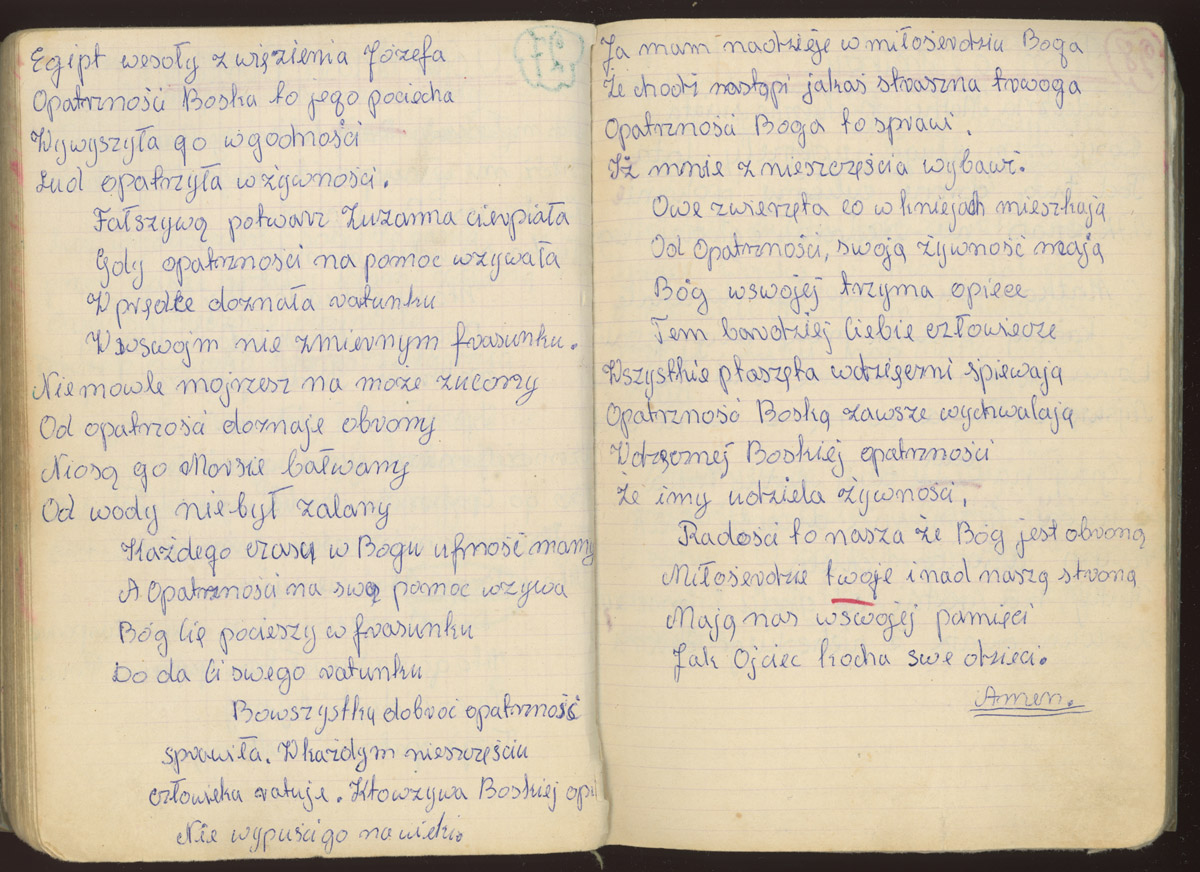 97
Egipt wesoły z więzienia Józefa
Opatrzności Boska to jego pociecha
Wywyszyła go wgodności
Lud opatrzyła wżywności.
Fałszywą potwarz Zuzanna cierpiała
Gdy opatrzności na pomoc wzywała
W prędce doznała ratunku
W swojm nie zmiernym frasunku.
Niemowle mojrzesz na może zucony
Od opatrzości doznaje obrony
Niosą go Morsie bałwany
Od wody niebył zalany
Każdego czasu w Bogu ufność mamy
A Opatrzności na swą pomoc wzywa
Bóg Cię pocieszy w frasunku
Do da Ci swego ratunku
Bowszystką dobroć opatrzność
sprawiła. Wkażdym nieszczęściu
człowieka ratuje. Ktowzywa Boskiej opi
Nie wypuścigo na wieki.
98
Ja mam nadzieję w miłosierdziu Boga
Że chodź nastąpi jakaś straszna trwoga
Opatrzności Boga to sprawi.
Iż mnie z nieszczęścia wybawi.
Owe zwierzęta co w kniejach mieszkają
Od Opatrzności, swoją żywność mają
Bóg wswojej trzyma opiece
Tem bardziej Ciebie człowiecze
Wszystkie ptaszęta wdzięczni śpiewają
Opatrzność Boską zawsze wychwalają
Wdzęcznej Boskiéj opatrzności
Że imy udziela żywności,
Radości to nasza że Bóg jest obroną
Miłosierdzie twoje i nad naszą stroną
Mają nas wswojéj pamięci
Jak Ojciec kocha swe dzieci.
Amen.